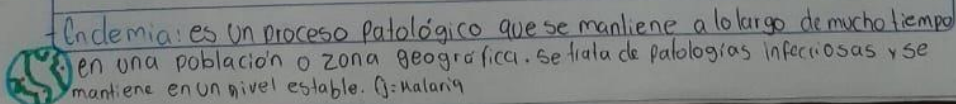 Endemia: es un proceso patológico que se mantiene a lo largo de mucho tiempo
en una población o zona geográfica. se trata de patologías infecciosas y se
mantiene en un nivel estable. Ej: Malaria